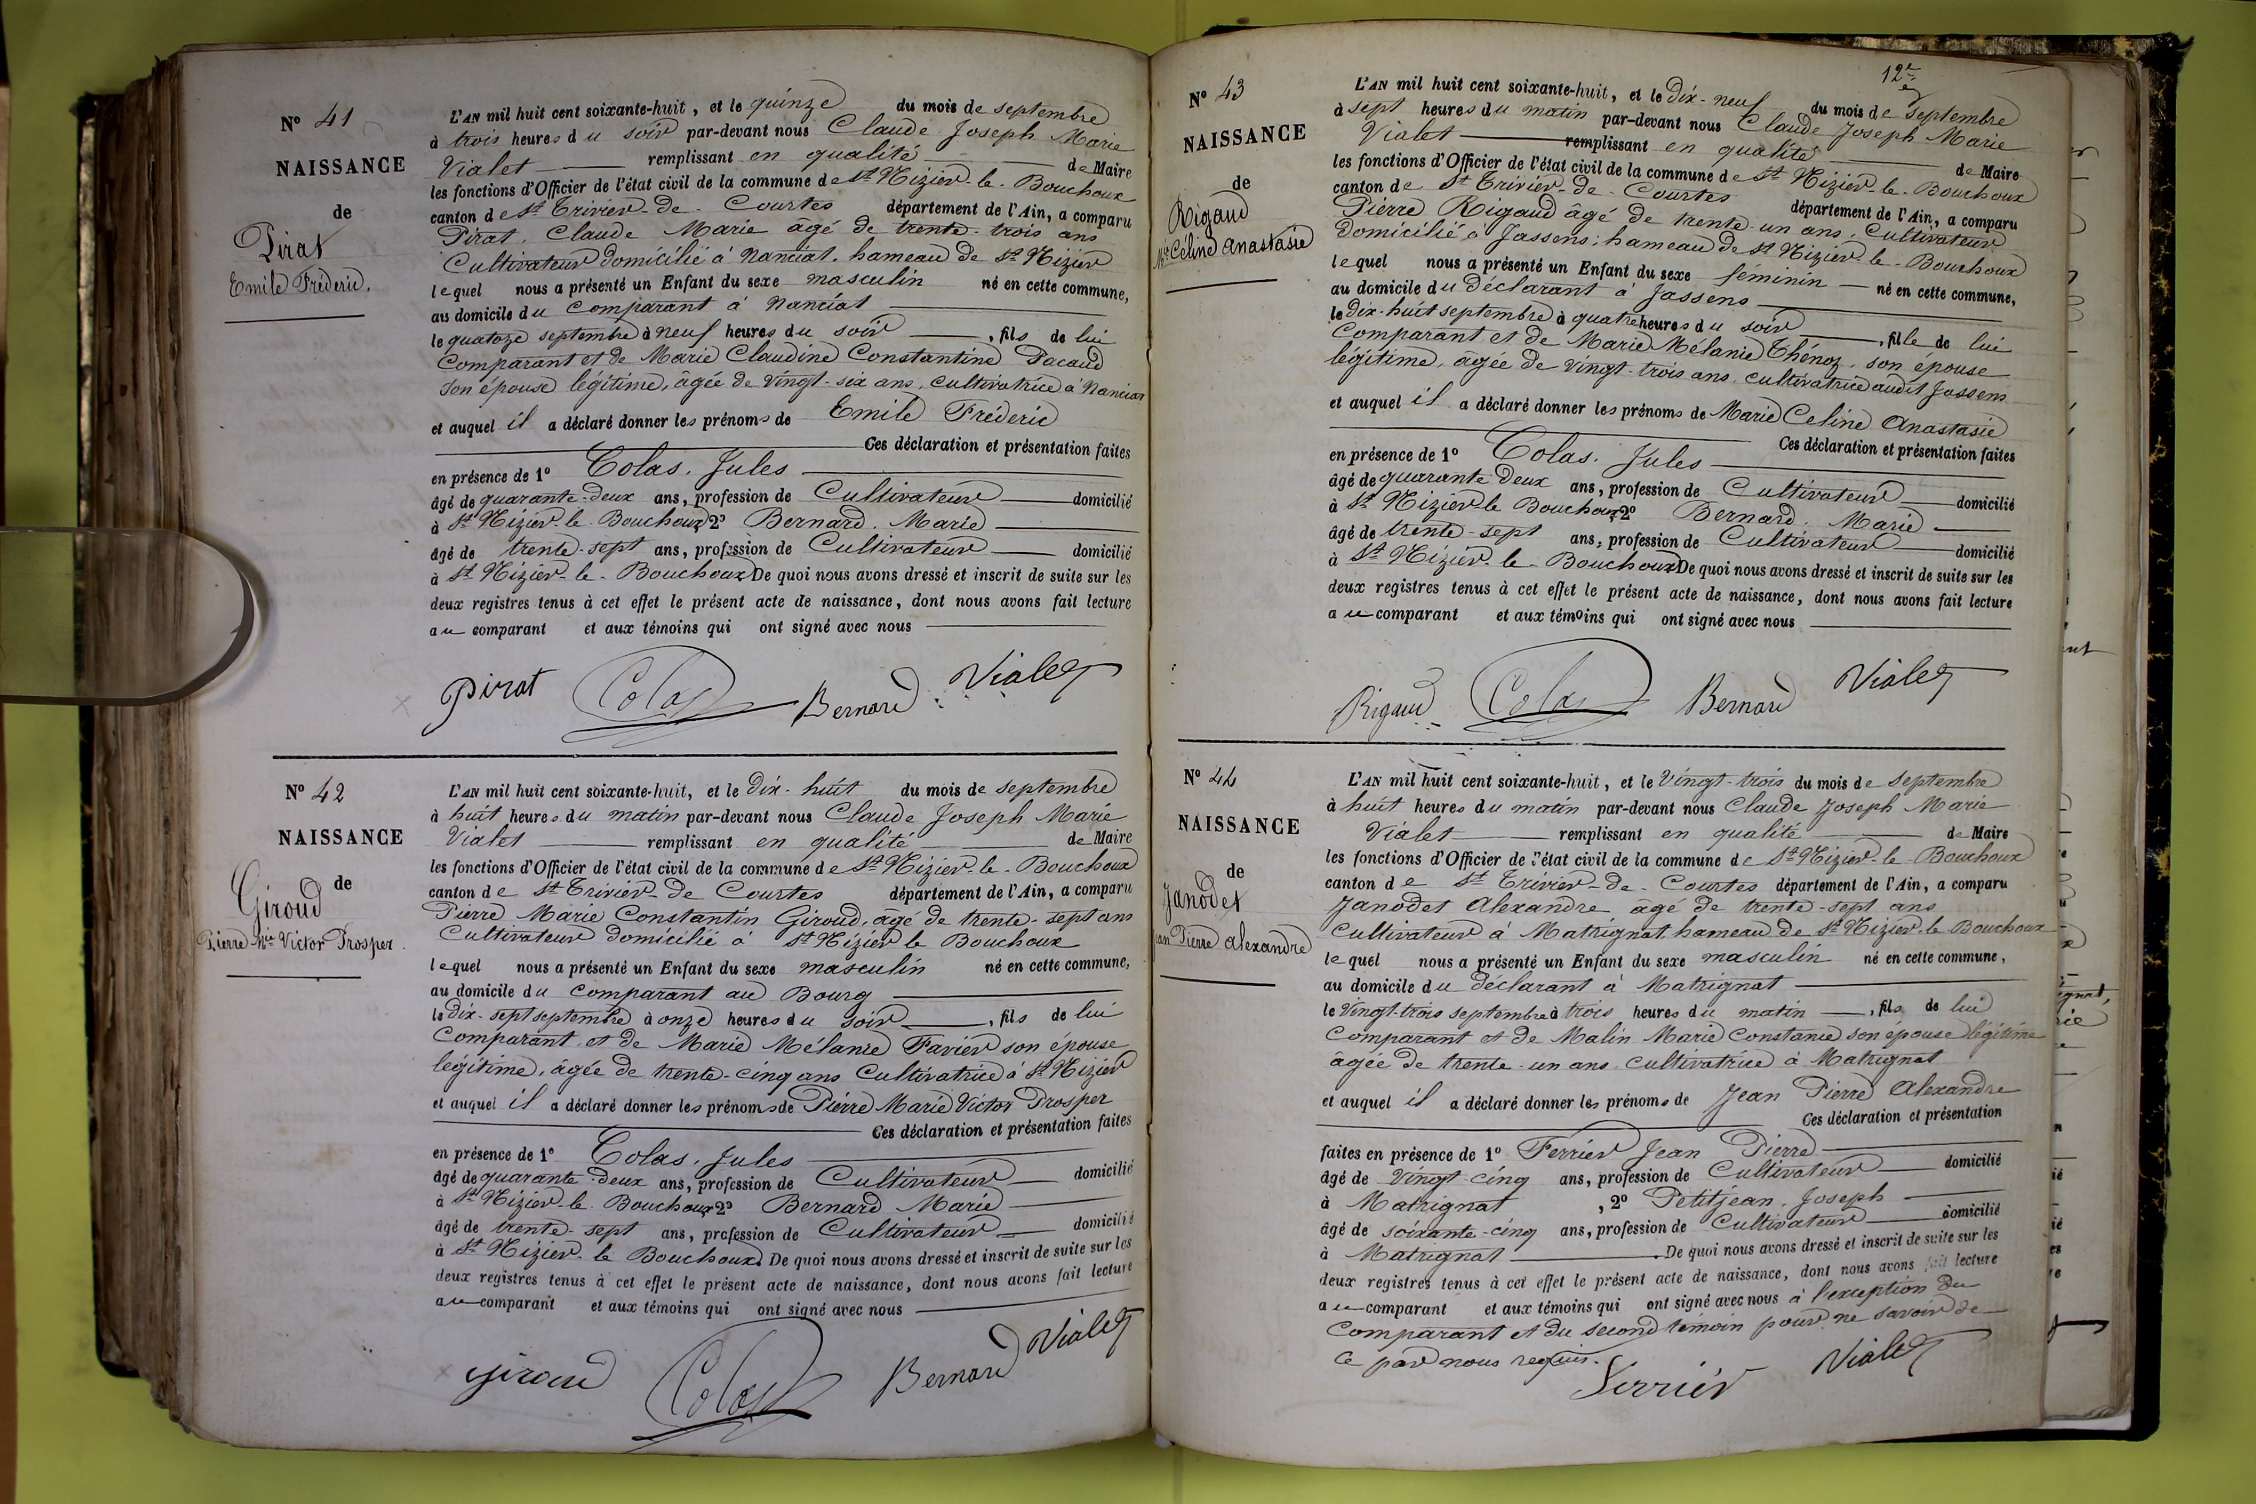 N° 41
NAISSANCE
de
Pirat
Emile Fréderic.
L'AN mil huit cent soixante-huit, et le quinze du mois de septembre
à trois heures du soir par-devant nous Claude Joseph Marie
Vialet remplissant en qualité de Maire
les fonctions d'Officier de l'état civil de la commune de St Nizier-le-Bouchoux
canton de St Trivier-de-Courtes département de l'Ain, a comparu
Pirat, Claude Marie âgé de trente-trois ans
Cultivateur domicilié à Nanciat, hameau de St Nizier
lequel nous a présenté un Enfant du sexe masculin né en cette commune,
au domicile du comparant à Nanciat
le quatorze septembre à neuf heures du soir, fils de lui
Comparant et de Marie Claudine Constantine Pacaud
son épouse légitime, âgée de vingt-six ans, cultivatrice à Nanciat
et auquel il a déclaré donner les prénoms de Emile Fréderic
Ces déclaration et présentation faites
en présence de 1° Colas, Jules
âgé de quarante-deux ans, profession de Cultivateur domicilié
à St Nizier-le-Bouchoux 2° Bernard, Marie
âgé de trente-sept ans, profession de Cultivateur domicilié
à St Nizier-le-Bouchoux De quoi nous avons dressé et inscrit de suite sur les
deux registres tenus à cet effet le présent acte de naissance, dont nous avons fait lecture
au comparant et aux témoins qui ont signé avec nous
Pirat Colas Bernard Vialet
N° 42
NAISSANCE
de
Giroud
Pierre Mie Victor Prosper
L'AN mil huit cent soixante-huit, et le dix-huit du mois de septembre
à huit heures du matin par-devant nous Claude Joseph Marie
Vialet remplissant en qualité de Maire
les fonctions d'Officier de l'état civil de la commune de St Nizier-le-Bouchoux
canton de St Trivier-de Courtes département de l'Ain, a comparu
Pierre Marie Constantin Giroud, âgé de trente-sept ans
Cultivateur domicilié à St Nizier le Bouchoux
lequel nous a présenté un Enfant du sexe masculin né en cette commune,
au domicile du comparant au Bourg
le dix-sept septembre à onze heures du soir, fils de lui
Comparant, et de Marie Mélanie Favier son épouse
légitime, âgée de trente-cinq ans Cultivatrice à St Nizier
et auquel il a déclaré donner les prénoms de Pierre Marie Victor Prosper
Ces déclaration et présentation faites
en présence de 1° Colas, Jules
âgé de quarante-deux ans, profession de Cultivateur domicilié
à St Nizier-le-Bouchoux 2° Bernard Marie
âgé de trente-sept ans, profession de Cultivateur domicilié
à St Nizier-le Bouchoux De quoi nous avons dressé et inscrit de suite sur les
deux registres tenus à cet effet le présent acte de naissance, dont nous avons fait lecture
au comparant et aux témoins qui ont signé avec nous
Giroud Colas Bernard Vialet
12e
N° 43
NAISSANCE
de
Rigaud
Mie Céline Anastasie
L'AN mil huit cent soixante-huit, et le dix-neuf du mois de septembre
à sept heures du matin par-devant nous Claude Joseph Marie
Vialet remplissant en qualité de Maire
les fonctions d'Officier de l'état civil de la commune de St Nizier-le-Bouchoux
canton de St Trivier-de-Courtes département de l'Ain, a comparu
Pierre Rigaud âgé de trente-un ans, Cultivateur
domicilié à Jassens; hameau de St Nizier-le-Bouchoux
lequel nous a présenté un Enfant du sexe féminin né en cette commune,
au domicile du déclarant à Jassens
le dix-huit septembre à quatre heures du soir, fille de lui
Comparant et de Marie Mélanie Thénoz, son épouse
légitime, âgée de vingt-trois ans cultivatrice audit Jassens
et auquel il a déclaré donner les prénoms de Marie Celine Anastasie
Ces déclaration et présentation faites
en présence de 1° Colas, Jules
âgé de quarante deux ans, profession de Cultivateur domicilié
à St Nizier-le Bouchoux 2° Bernard, Marie
âgé de trente-sept ans, profession de Cultivateur domicilié
à St Nizier-le-Bouchoux De quoi nous avons dressé et inscrit de suite sur les
deux registres tenus à cet effet le présent acte de naissance, dont nous avons fait lecture
au comparant et aux témoins qui ont signé avec nous
Rigaud Colas Bernard Vialet
N° 44
NAISSANCE
de
Janodet
Jean Pierre Alexandre
L'AN mil huit cent soixante-huit, et le vingt-trois du mois de septembre
à huit heures du matin par-devant nous Claude Joseph Marie
Vialet remplissant en qualité de Maire
les fonctions d'Officier de l'état civil de la commune de St Nizier-le-Bouchoux
canton de St Trivier-de-Courtes département de l'Ain, a comparu
Janodet Alexandre âgé de trente-sept ans
Cultivateur à Matrignat hameau de St Nizier-le-Bouchoux
lequel nous a présenté un Enfant du sexe masculin né en cette commune,
au domicile du déclarant à Matrignat
le vingt-trois septembre à trois heures du matin, fils de lui
Comparant et de Malin Marie Constance son épouse légitime
âgée de trente-un ans cultivatrice à Matrignat
et auquel il a déclaré donner les prénoms de Jean Pierre Alexandre
Ces déclaration et présentation
faites en présence de 1° Ferrier Jean Pierre
âgé de vingt-cinq ans, profession de Cultivateur domicilié
à Matrignat, 2° Petitjean, Joseph
âgé de soixante-cinq ans, profession de Cultivateur domicilié
à Matrignat. De quoi nous avons dressé et inscrit de suite sur les
deux registres tenus à cet effet le présent acte de naissance, dont nous avons fait lecture
au comparant et aux témoins qui ont signé avec nous à l'exception du
Comparant et du second témoin pour ne savoir de
ce par nous requis.
Ferrier Vialet